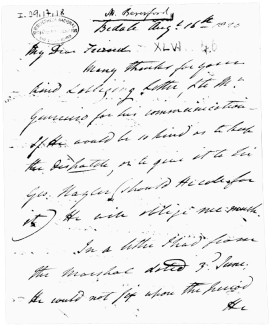 I-29,17,18
M. Beresford
Bedale Augt. 16th
XLVI 46
My Dear Friend
Many thanks for your
kind obliging Letter, & to Mr
for his communication
If He would be so kind as to keep
the Dispatch, or to give it to Sir
Geo. Nayler (should He call for
it) He will oblige me much.
In a letter I had from
the Marshal dated 3d June
He would not fix upon the period
He